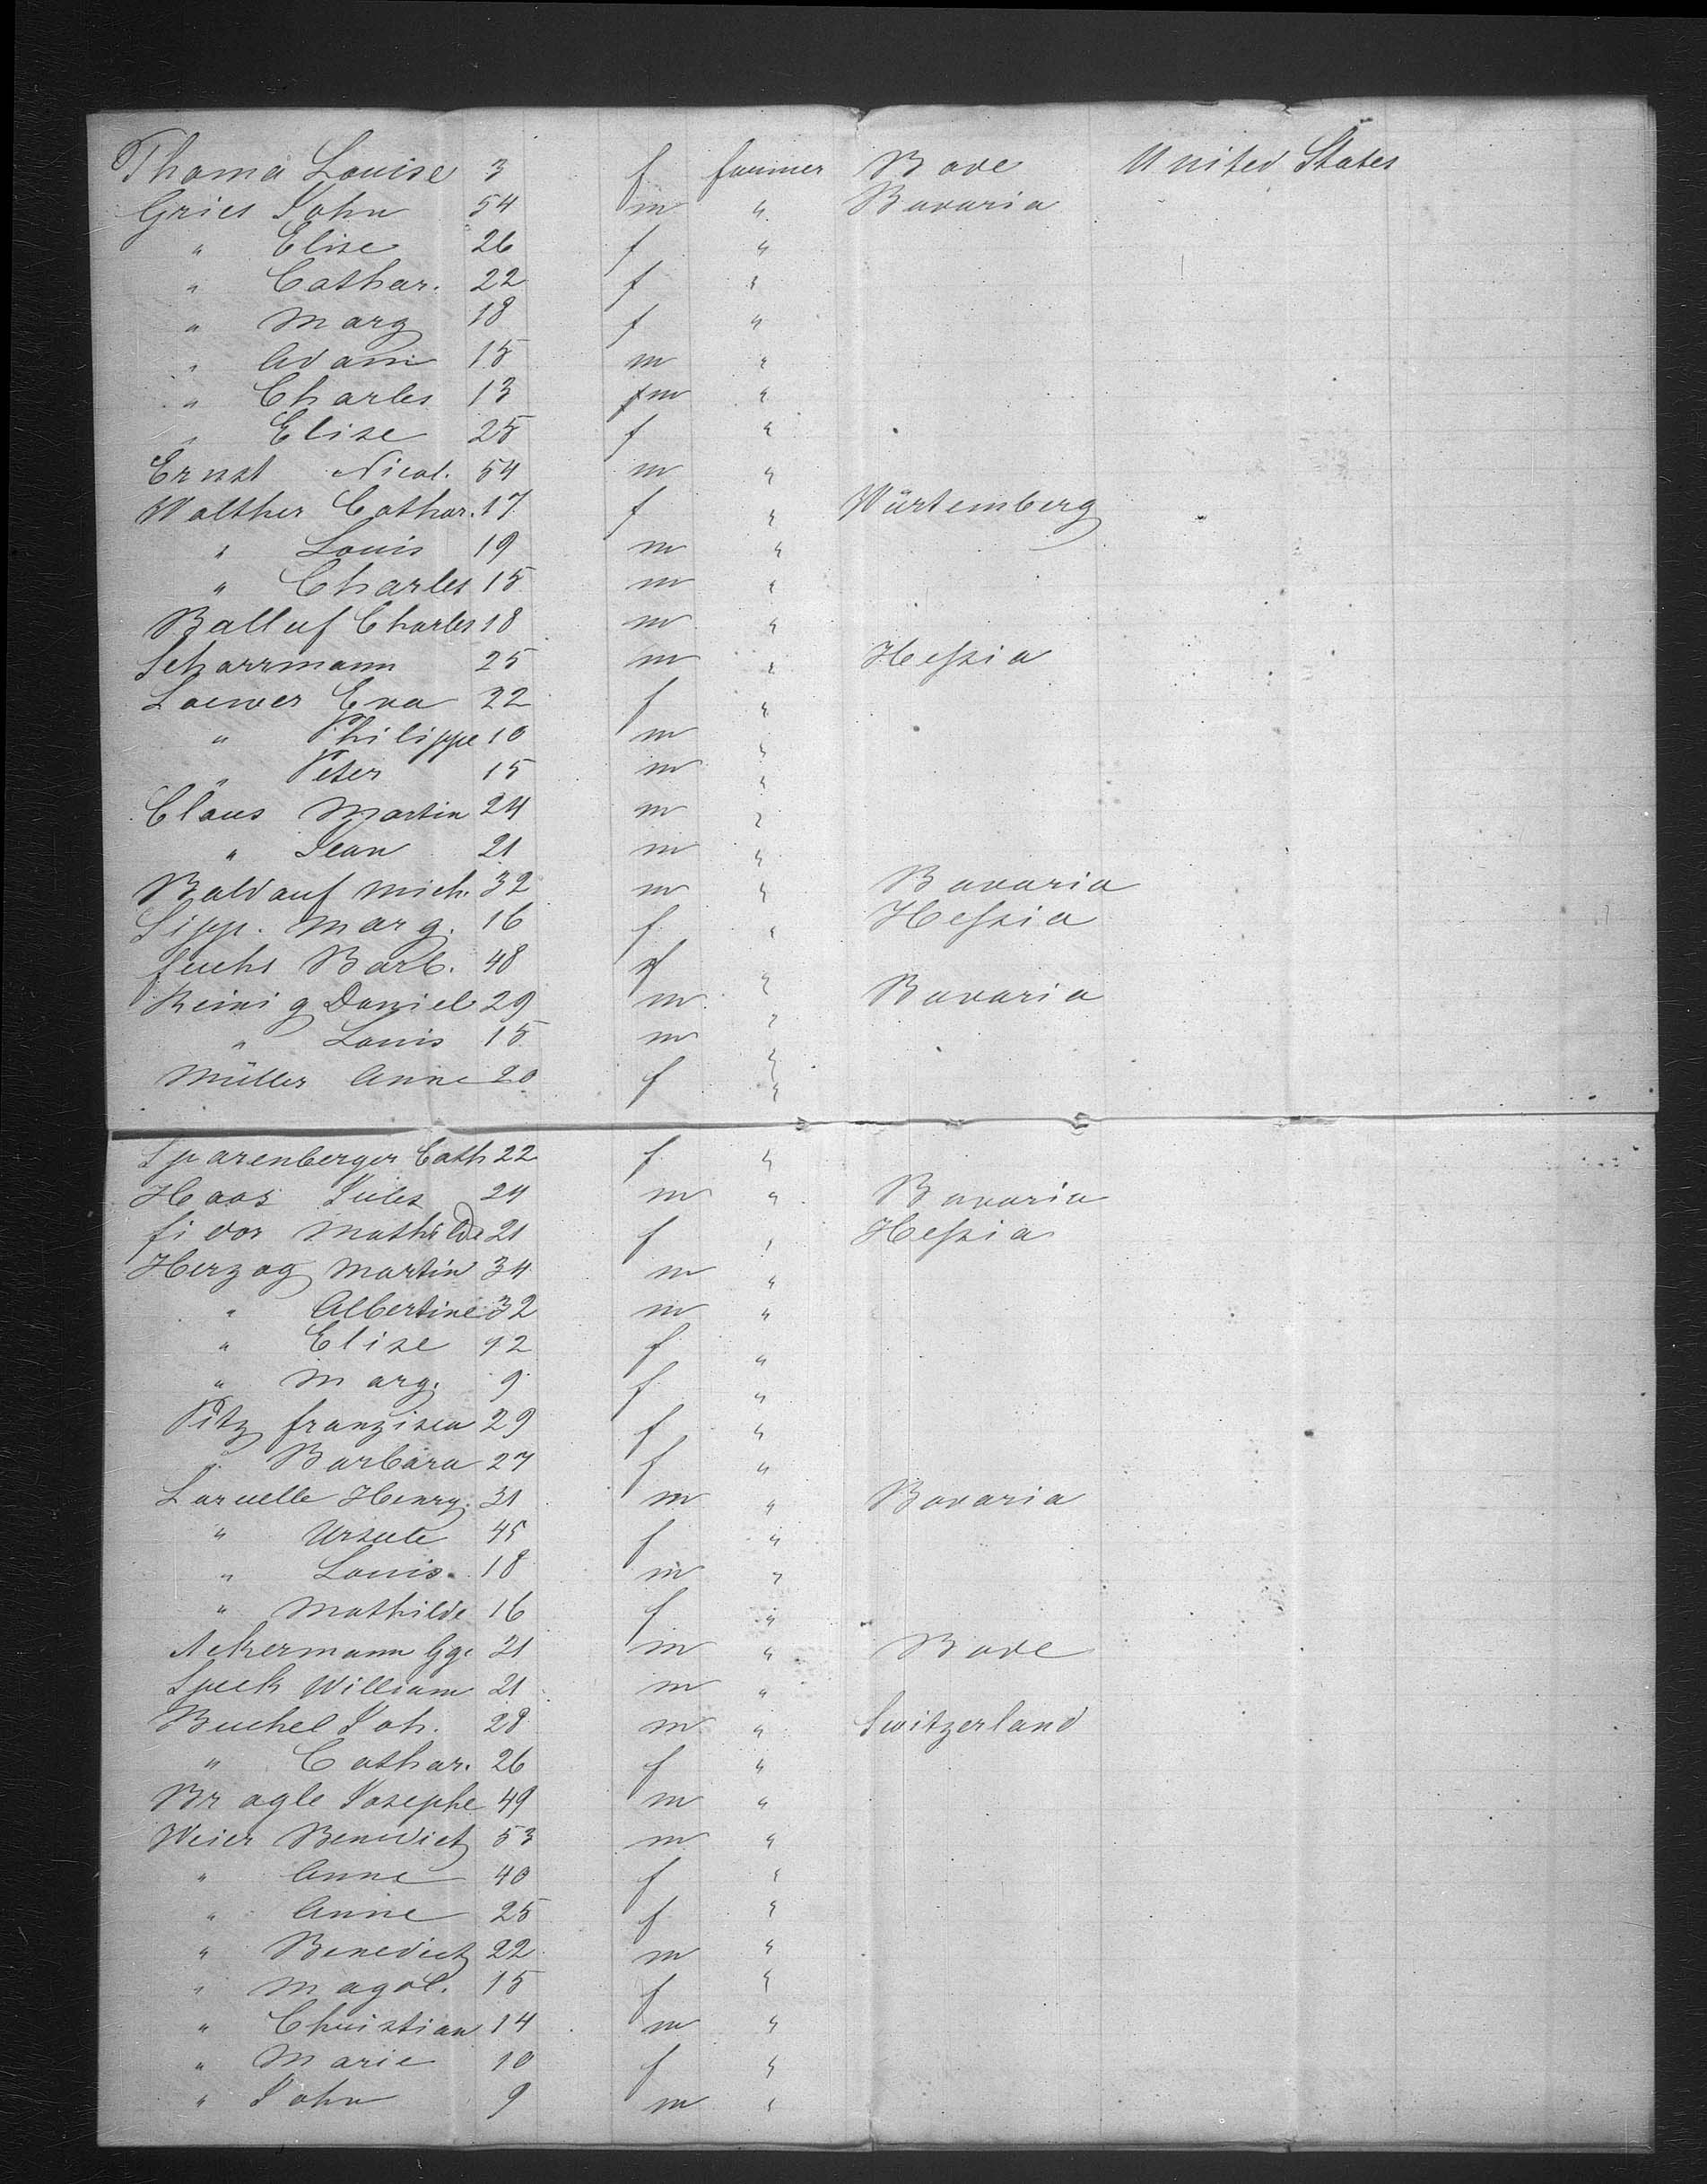 Thoma Louise 3 f farmer Bade United States
Gries John 54 m " Bavaria
" Elise 26 f "
" Cathar. 22 f "
" Marg 18 f "
" Adam 15 m "
" Charles 13 m "
" Elise 25 f "
Ernst Nicol. 54 m "
Walther Cathar. 17 f " Würtemberg
" Louis 19 m "
" Charles 15 m "
Balluf Charles 18 m "
Scharrmann 25 m " Hessia
Loewer Eva 22 f "
" Philippe 10 m "
" Peter 15 m "
Claus Martin 24 m "
" Jean 21 m "
Baldauf Mich. 32 m " Bavaria
Sipp. Marg. 16 f " Hessia
Fuchs Barb. 48 f "
Reinig Daniel 29 m " Bavaria
" Louis 15 m "
Müller Anne 20 f "
Sparenberger Cath 22 f "
Haas Jules 24 m " Bavaria
Mathilde 21 f " Hessia
Herzog Martin 34 m "
" Albertine 32 m "
" Elise 12 f "
" Marg. 9 f "
Pitz Franzisca 29 f "
" Barbara 27 f "
Laruelle Henry. 31 m " Bavaria
" Ursule 45 f "
" Louis. 18 m "
" Mathilde 16 f "
Ackermann Gg. 21 m " Bade
Speck William 21 m "
Buchel Joh. 28 m " Switzerland
" Cathar. 26 f "
Bragle Josephe 49 m "
Weier Benedict 53 m "
" Anne 40 f "
" Anne 25 f "
" Benedict 22 m "
" Magdl. 15 f "
" Christian 14 m "
" Marie 10 f "
" John 9 m "